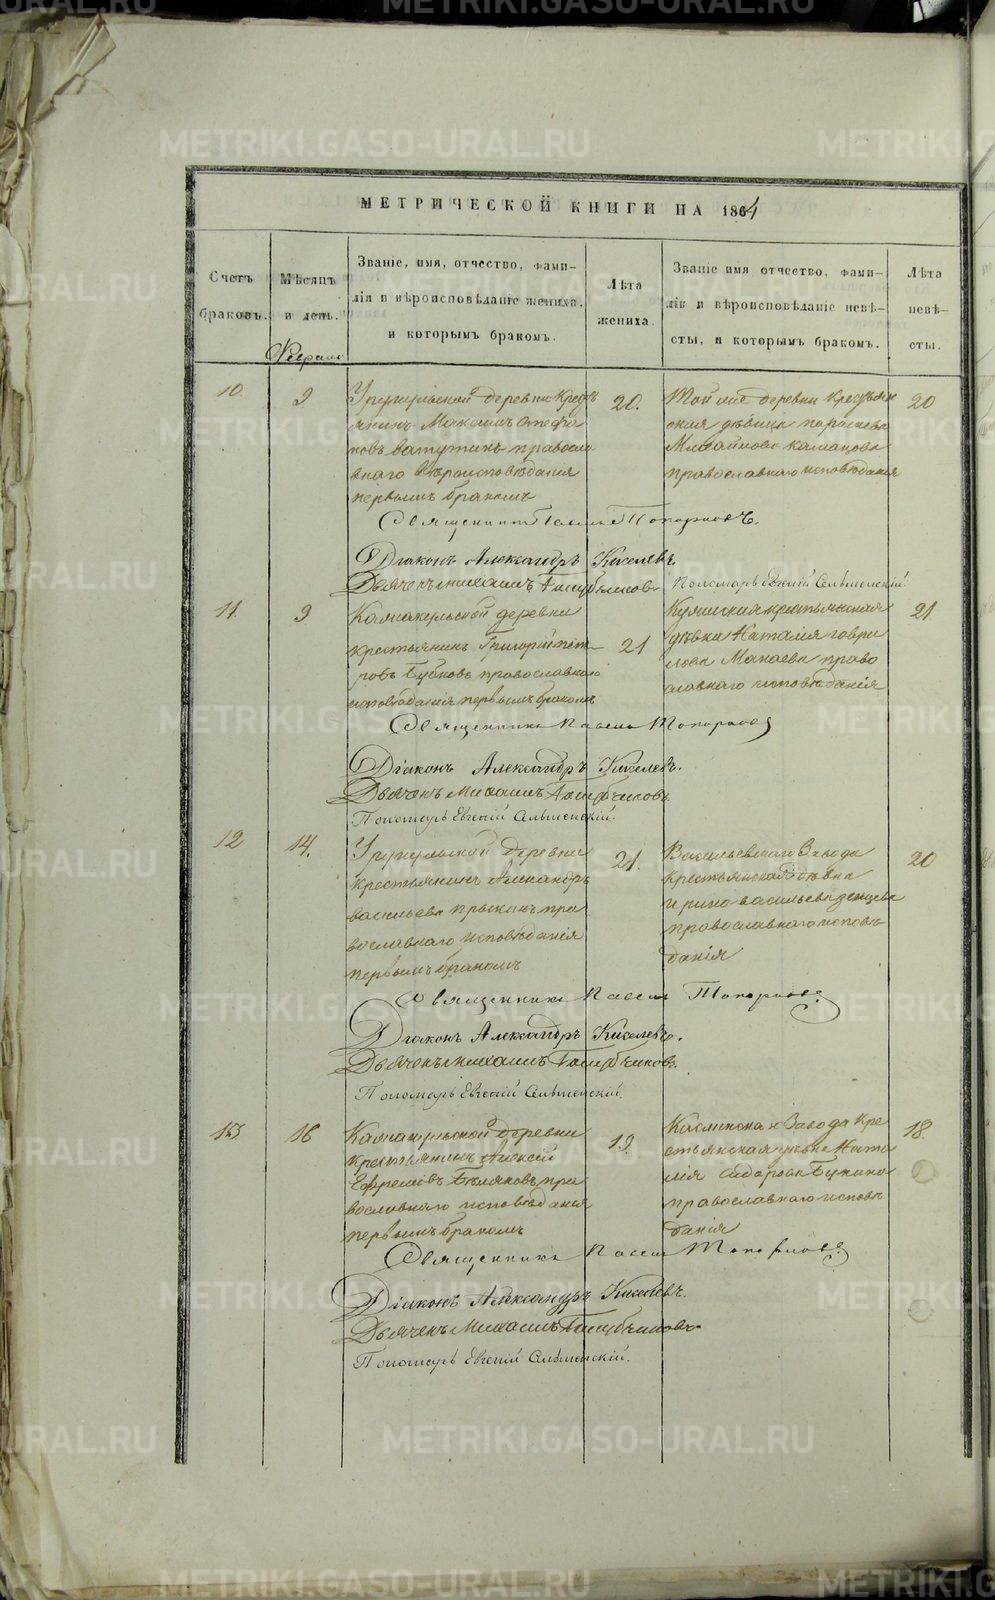 МЕТРИЧЕСКОЙ КНИГИ НА 1864
Счетъ
браковъ.
Мѣсяцъ
и день.
Званіе, имя, отчество, фами-
лія и вѣроисповѣданіе жениха,
и которымъ бракомъ.
Лѣта
жениха.
Званіе имя отчество, фами-
лія и вѣроисповѣданіе невѣ-
сты, и которымъ бракомъ.
Лѣта
невѣ-
сты.
10.
9
деревни
Максимъ Стефа
новъ православ
наго вѣроисповѣданія
первымъ бракомъ
20.
Той же деревни Крестьян
ская дѣвица Параскева
Михайлова
православнаго исповѣданія
20
Священникъ Павелъ Топорковъ.
Діаконъ Александръ Киселевъ.
Дьячекъ Михаилъ Голубчиковъ
Пономарь Евгеній
11.
9
деревни
крестьянинъ Григорій Пет
ровъ Бубновъ православнаго
исповѣданія первымъ бракомъ
21
крестьянская
дѣвка Наталія Гаври
лова Макаева право
славнаго исповѣданія
21
Священникъ Павелъ Топорковъ
Діаконъ Александръ Киселевъ.
Дьячекъ Михаилъ Голубчиковъ
Пономарь Евгеній
12
14.
деревни
крестьянинъ Александръ
Васильевъ пра
вославнаго исповѣданія
первымъ бракомъ
21.
Васильевскаго Завода
крестьянская дѣвка
Ирина Васильева
православнаго исповѣ
данія
20
Священникъ Павелъ Топорковъ
Діаконъ Александръ Киселевъ.
Дьячекъ Михаилъ Голубчиковъ.
Пономарь Евгеній
13
16
деревни
крестьянинъ Алексѣй
Ефремовъ Бѣляковъ пра
вославнаго исповѣданія
первымъ бракомъ
19.
Завода Кре
стьянская дѣвка Ната
лія Сидорова
православнаго исповѣ
данія
18.
Священникъ Павелъ Топорковъ
Діаконъ Александръ Киселевъ.
Дьячекъ Михаилъ Голубчиковъ
Пономарь Евгеній
METRIKI.GASO-URAL.RU